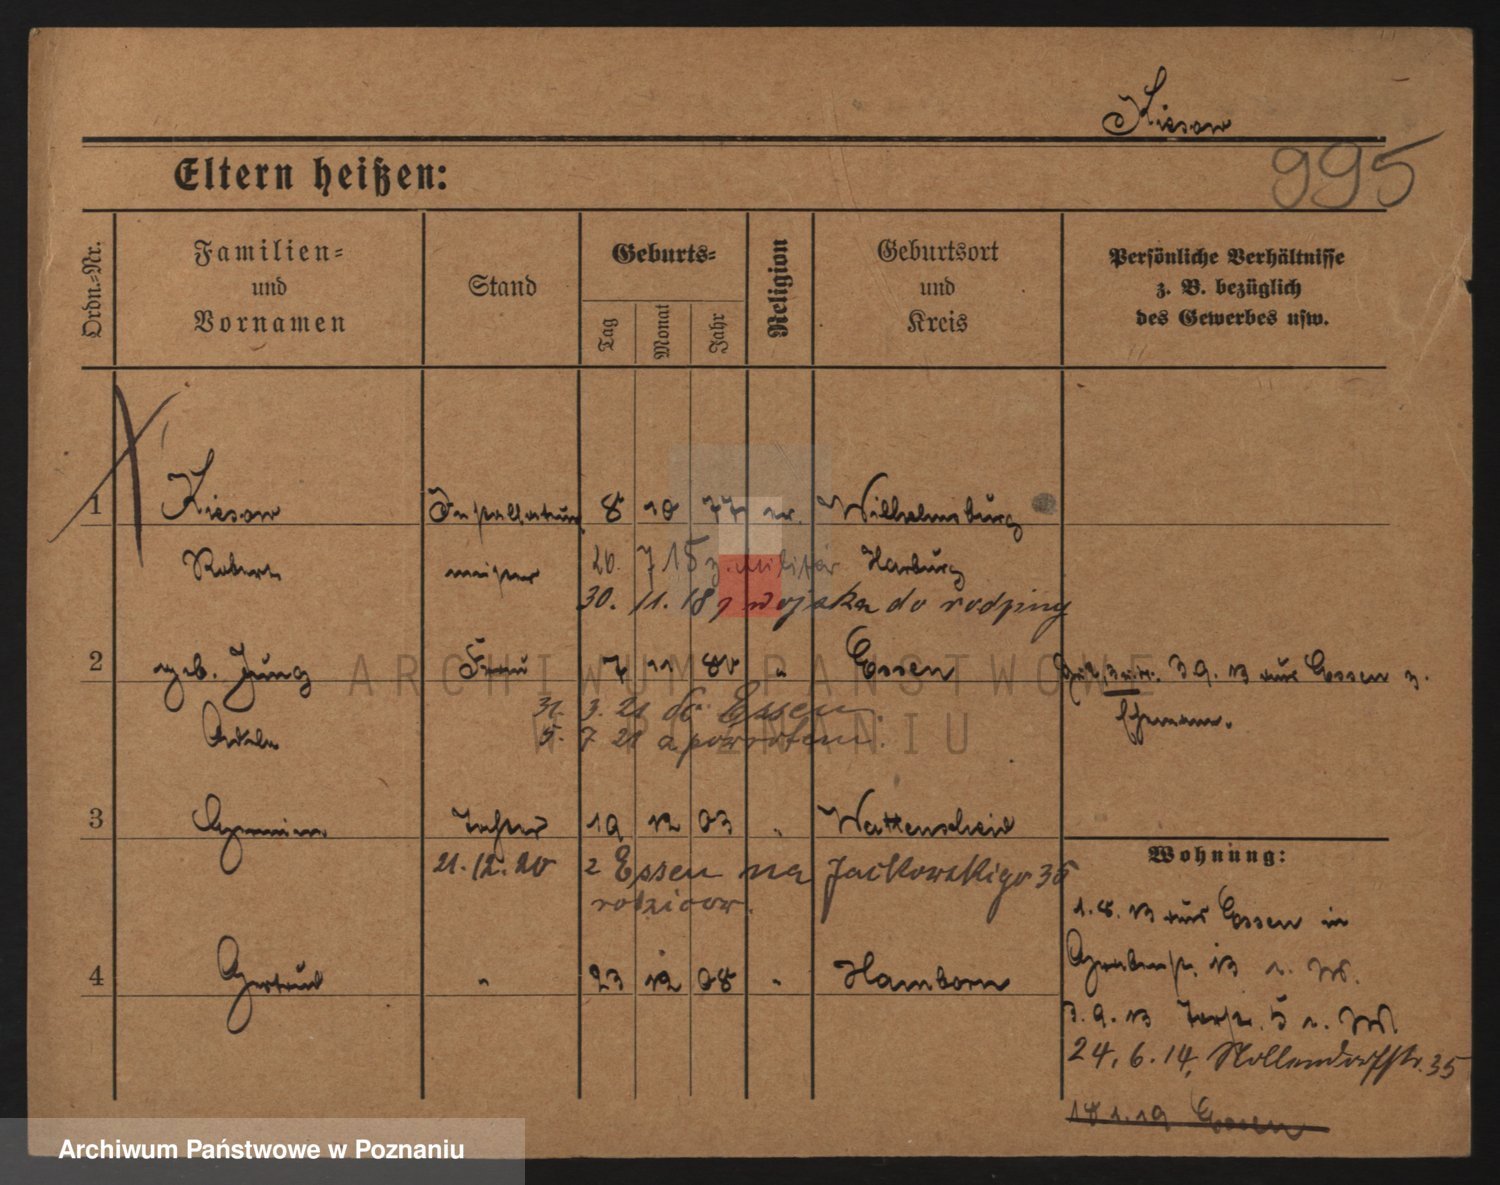 Kiesow
Eltern heißen:
995
Ordn.=Nr.
Familien=
und
Vornamen
Stand
Geburts=
Tag
Monat
Jahr
Religion
Geburtsort
und
Kreis
Persönliche Verhältnisse
z. B. bezüglich
des Gewerbes usw.
1 Kiesow Installateur 8 10 77 ev. Wilhelmsburg
Robert meister 20. 7 15 z. Militär Harburg
30. 11. 18 z wojska do rodziny
2 geb. Jung Frau 7 11 80 " Essen 3.9.13 aus Essen z.
31. 3. 21 do Essen
Ehemann.
Adele 5. 7 21 z powrotem.
3 Tochter 19 12 03 " Wattenscheid
21.12.20 z Essen na Jackowskigo 35
rodziców.
4 Gertrud " 23 12 08 " Hamborn
Wohnung:
1.8.13 aus Essen in
Grabenstr. 13 b. W.
3.9.13 5 b.
24.6.14, Nollendorfstr. 35
18.1.19 Essen
ARCHIWUM PAŃSTWOWE
W POZNANIU
Archiwum Państwowe w Poznaniu